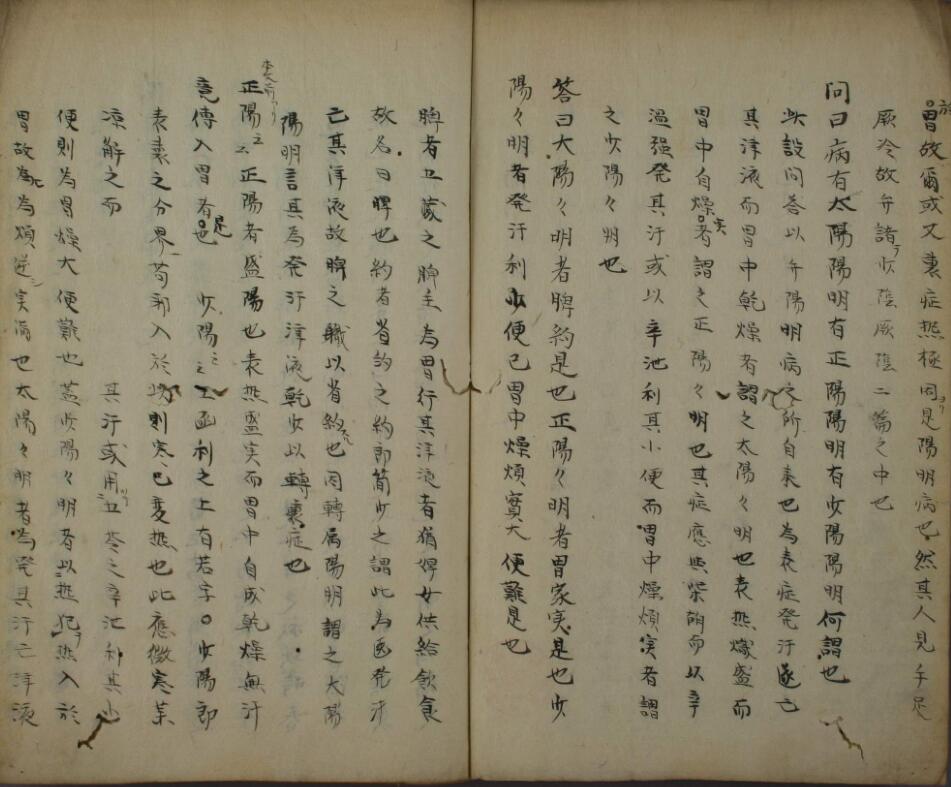 胃故爾或又裏症熱極同是陽明病也然其人見手足
厥冷故弁諸少陰厥陰二篇之中也
問曰病有太陽陽明有正陽陽明有少陽陽明何謂也
此設問荅以弁陽明病之所自来也為表症発汗遂亡
其津液而胃中乾燥者謂之太陽々明也表熱熾盛而
胃中自燥実者謂之正陽々明也其症應與柴胡而以辛
過强発其汗或以辛池利其小便而胃中燥煩実者謂
之少陽々明也
答曰大陽々明者脾約是也正陽々明者胃家実是也少
陽々明者発汗利少便已胃中燥煩實大便難是也
脾者五藏之脾主為胃行其津液者猶婢女供給飲食
故名曰脾也約者省約之約節簡少之謂此為医発汗
亡其津液故脾之職以省約也因轉属陽明謂之大陽
陽明言其為発汗津液乾少以轉裏症也
正陽正陽者盛陽也表熱盛実而胃中自成乾燥無汗
竟傳入胃者是也 少陽玉函利之上有若字○少陽部
表裏之分界苟邪入於此則寒已変熱也此應微寒薬
凉解之而 其汗或用五苓之辛池利其少
便則為胃燥大便難也蓋少陽々明者以熱犯熱入於
胃故為煩逆実満也太陽々明者為発其汗亡津液